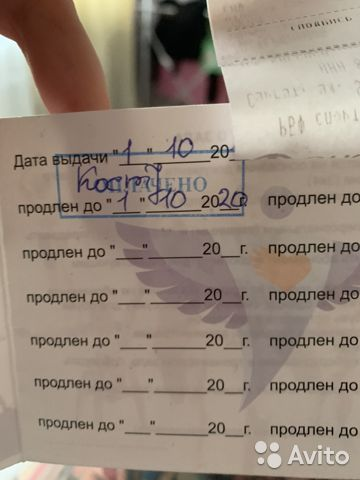 подпись
Дата выдачи "1" 10 20
ОПЛАЧЕНО
продлен до "1" 10 2020 продлен до
продлен до "___"______20__г. продлен до
продлен до "___"______20__г. продлен до
продлен до "___"______20__г. продлен до
продлен до "___"______20__г. продлен до
продлен до "___"______20__г. продлен до
Avito